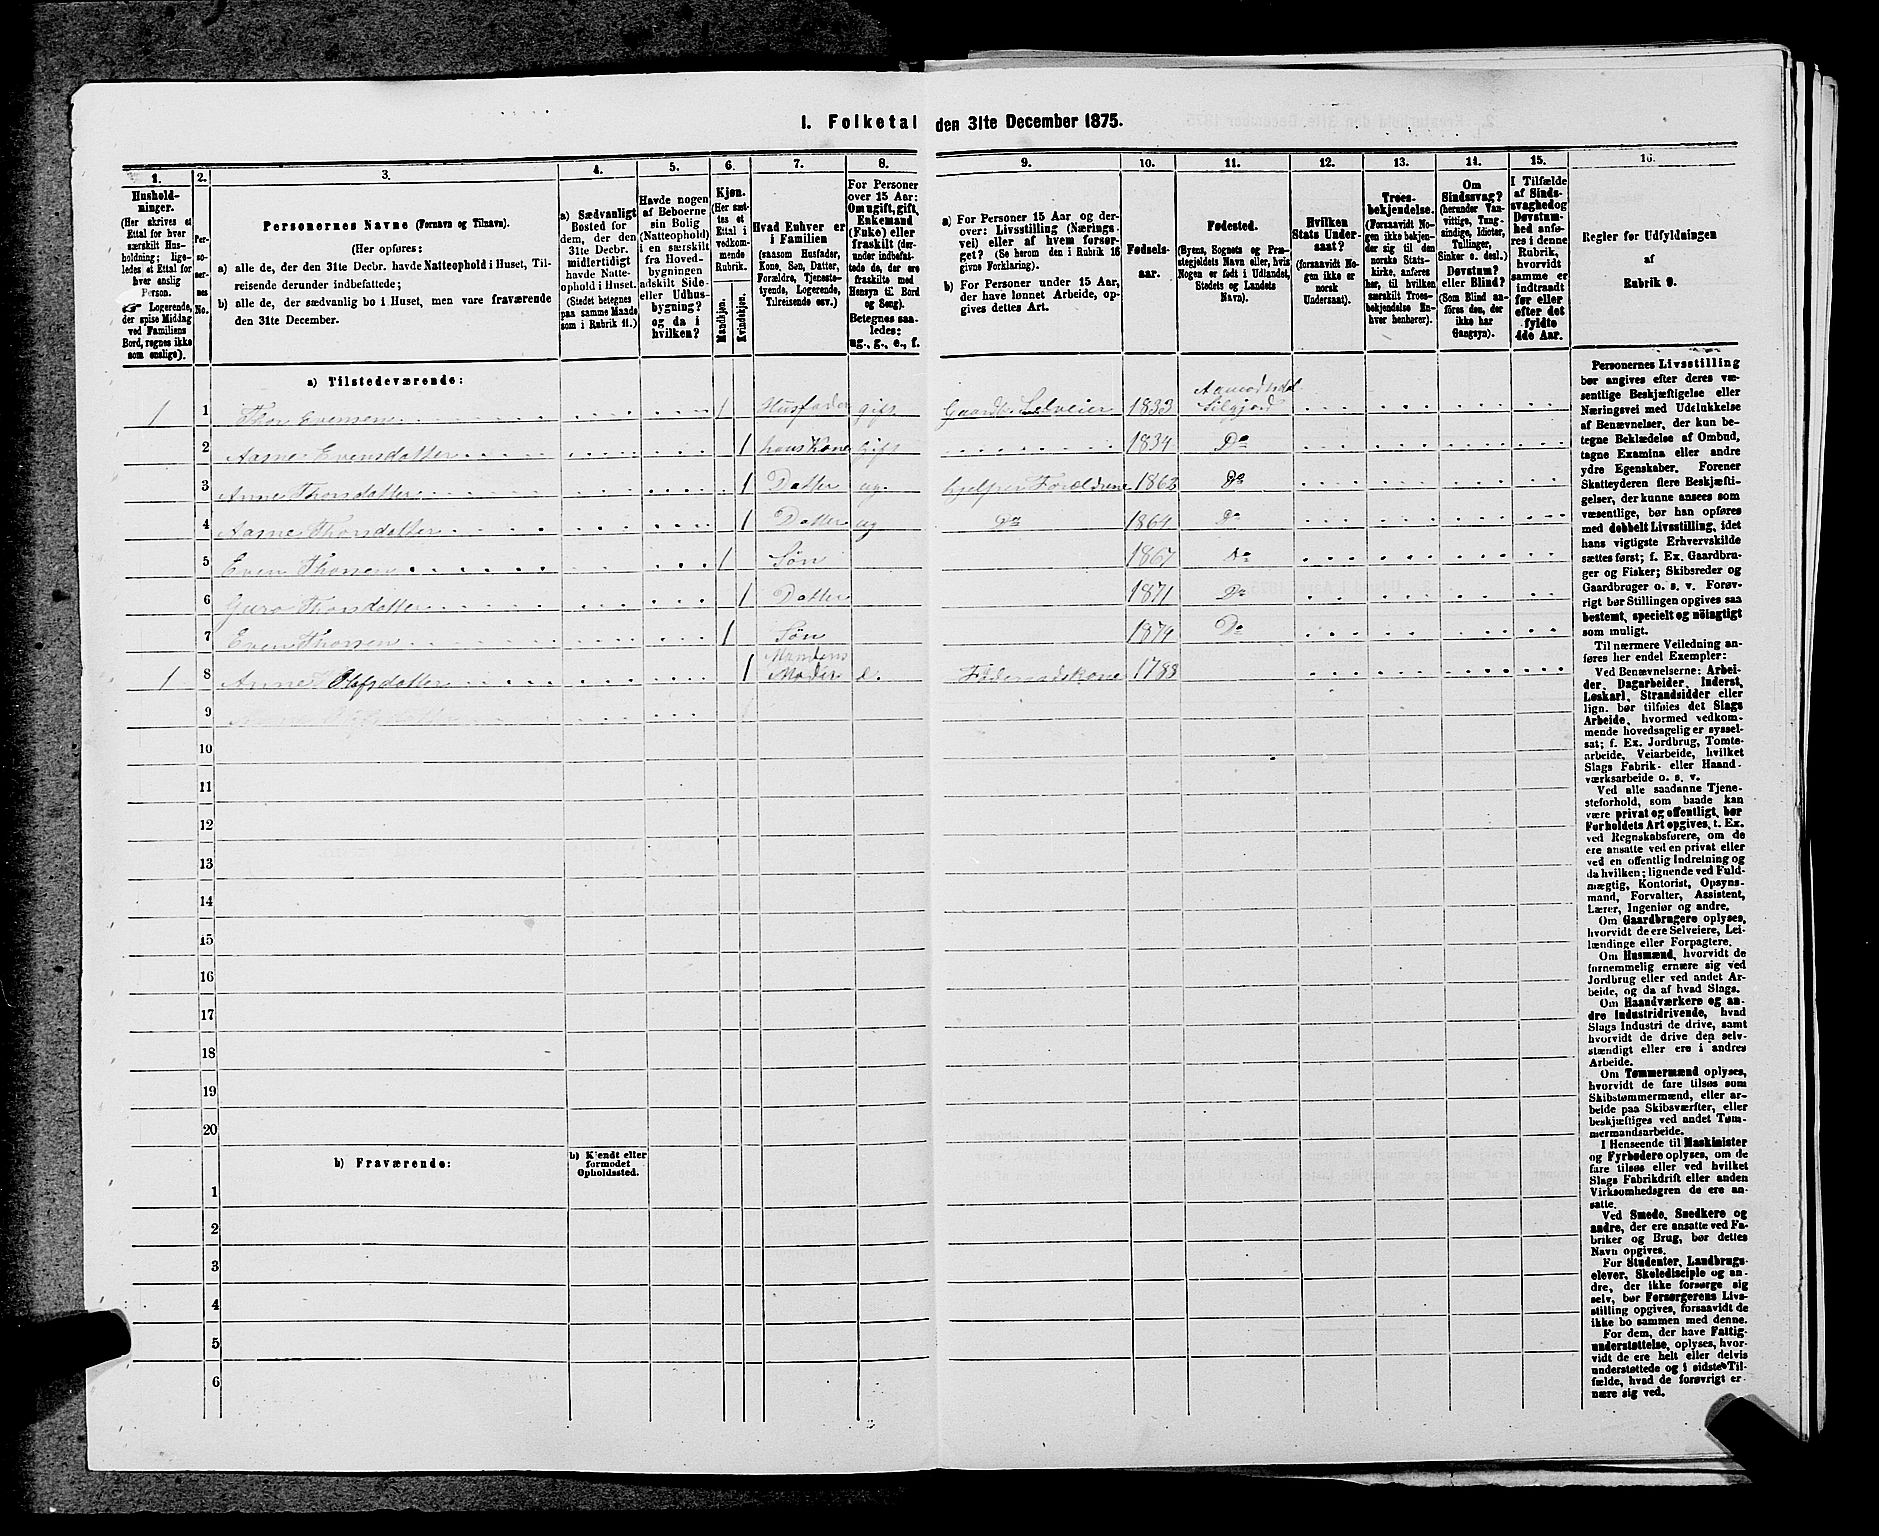 1. Folketal den 31te December 1875.
1.
2.
3.
4.
5.
6.
7.
8.
9.
10.
11.
12.
13.
14.
15.
16.
Hushold-
ninger.
(Her skrives et
Ettal for hver
særskilt Hus-
holdning; lige-
ledes et Ettal for
hver enslig
Person.
☞ Logerende,
der spise Middag
ved Familiens
Bord, regnes ikke
som enslige).
Per-
soner-
nes
No.
Personernes Navne (Fornavn og Tilnavn).
(Her opføres:
a) alle de, der den 31te Decbr. havde Natteophold i Huset, Til-
reisende derunder indbefattede;
b) alle de, der sædvanlig bo i Huset, men vare fraværende
den 31te December.
a) Sædvanligt
Bosted for
dem, der den
31te Decbr.
midlertidigt
havde Natte-
ophold i Huset.
(Stedet betegnes
paa samme Maade
som i Rubrik 11.)
Havde nogen
af Beboerne
sin Bolig
(Natteophold)
i en særskilt
fra Hoved-
bygningen
adskilt Side-
eller Udhus-
bygning?
og da i
hvilken?
Kjøn.
(Her sæt-
tes et
Ettal i
vedkom-
mende
Rubrik.
Mandkjøn.
Kvindekjøn.
Hvad Enhver er
i Familien
(saasom Husfader,
Kone, Søn, Datter,
Forældre, Tjeneste-
tyende, Logerende,
Tilreisende osv.)
For Personer
over 15 Aar:
Om ugift, gift,
Enkemand
(Enke) eller
fraskilt (der-
under indbefat-
tede de, der ere
fraskilte med
Hensyn til Bord
og Seng).
Betegnes saa-
ledes:
ug., g., e., f.
a) For Personer 15 Aar og der-
over: Livsstilling (Nærings-
vei) eller af hvem forsør-
get? (Se herom den i Rubrik 16
givne Forklaring).
b) For Personer under 15 Aar,
der have lønnet Arbeide, op-
gives dettes Art.
Fødsels-
aar.
Fødested.
(Byens, Sognets og Præ-
stegjeldets Navn eller, hvis
Nogen er født i Udlandet,
Stedets og Landets
Navn).
Hvilken
Stats Under-
saat?
(forsaavidt No-
gen ikke er
norsk
Undersaat).
Troes-
bekjendelse.
(Forsaavidt No-
gen ikke bekjen-
der sig til den
norske Stats-
kirke, anføres
her, til hvilken
særskilt Troes-
bekjendelse En-
hver henhører).
Om
Sindssvag?
(herunder Van-
vittige, Tung-
sindige, Idioter,
Tullinger,
Sinker o. desl.).
Døvstum?
eller Blind?
(Som Blind an-
føres den, der
ikke har
Gangsyn).
I Tilfælde
af Sinds-
svaghed og
Døvstum-
hed anfø-
res i denne
Rubrik,
hvorvidt
samme er
indtraadt
før eller
efter det
fyldte
4de Aar.
Regler for Udfyldningen
af
Rubrik 9.
a) Tilstedeværende:
1 1 Thor Evensen 1 Husfader gift Gaardb. Selveier 1833 Aamodsdal Silgjord
2 Aasne Evensdatter 1 hans Kone Gift 1834 Do
3 Anne Thorsdatter 1 Datter ug. hjelper Forældrene 1863 Do
4 Aasne Thorsdatter 1 Datter ug Do 1864 Do
5 Even Thorsen 1 Søn 1867 Do
6 Guro Thorsdatter 1 Datter 1871 Do
7 Even Thorsen 1 Søn 1874 Do
1 8 Anne Olafsdatter 1 Mandens Moder e. Føderaadskone 1788
9
10
11
12
13
14
15
16
17
18
19
20
b) Fraværende:
b) Kjendt eller
formodet
Opholdssted.
1
2
3
4
5
6
Personernes Livsstilling
bør angives efter deres væ-
sentlige Beskjæftigelse eller
Næringsvei med Udelukkelse
af Benævnelser, der kun be-
tegne Beklædelse af Ombud,
tagne Examina eller andre
ydre Egenskaber. Forener
Skatteyderen flere Beskjæfti-
gelser, der kunne ansees som
væsentlige, bør han opføres
med dobbelt Livsstilling, idet
hans vigtigste Erhvervskilde
sættes først; f. Ex. Gaardbru-
ger og Fisker; Skibsreder og
Gaardbruger o. s. v. Forøv-
rigt bør Stillingen opgives saa
bestemt, specielt og nöiagtigt
som muligt.
Til nærmere Veiledning an-
føres her endel Exempler:
Ved Benævnelserne: Arbei-
der, Dagarbeider, Inderst,
Løskarl, Strandsidder eller
lign. bør tilføies det Slags
Arbeide, hvormed vedkom-
mende hovedsagelig er syssel-
sat; f. Ex. Jordbrug, Tomte-
arbeide, Veiarbeide, hvilket
Slags Fabrik- eller Haand-
værksarbeide o. s. v.
Ved alle saadanne Tjene-
steforhold, som baade kan
være privat og offentligt, bør
Forholdets Art opgives, t. Ex.
ved Regnskabsførere, om de
ere ansatte ved en privat eller
ved en offentlig Indretning og
da hvilken; lignende ved Fuld-
mægtig, Kontorist, Opsyns-
mand, Forvalter, Assistent,
Lærer, Ingeniør og andre.
Om Gaardbrugere oplyses,
hvorvidt de ere Selveiere, Lei-
lændinge eller Forpagtere.
Om Husmænd, hvorvidt de
fornemmelig ernære sig ved
Jordbrug eller ved andet Ar-
beide, og da af hvad Slags.
Om Haandværkere og an-
dre Industridrivende, hvad
Slags Industri de drive, samt
hvorvidt de drive den selv-
stændigt eller ere i andres
Arbeide.
Om Tømmermænd oplyses,
hvorvidt de fare tilsøs som
Skibstømmermænd, eller ar-
beide paa Skibsværfter, eller
beskjæftiges ved andet Tøm-
mermandsarbeide.
I Henseende til Maskinister
og Fyrbødere oplyses, om de
fare tilsøs eller ved hvilket
Slags Fabrikdrift eller anden
Virksomhedsgren de ere an-
satte.
Ved Smede, Snedkere og
andre, der ere ansatte ved Fa-
briker og Brug, bør dettes
Navn opgives.
For Studenter, Landbrugs-
elever, Skoledisciple og an-
dre, der ikke forsørge sig
selv, bør Forsørgerens Livs-
stilling opgives, forsaavidt de
ikke bo sammen med denne.
For dem, der have Fattig-
understøttelse, oplyses, hvor-
vidt de ere helt eller delvis
understøttede og i sidste Til-
fælde, hvad de forøvrigt er-
nære sig ved.